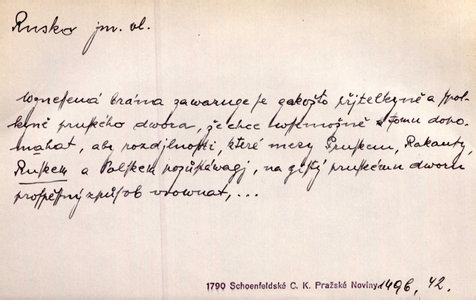 Rusko jm. vl.
wznessená brána zawazuge se gakožto přjtelkyně a spol-
kyně pruského dwora, že chce wssemožně k tomu dopo-
mahat, aby rozdjlnosti, které mezy Pruskem, Rakausy,
Ruskem a Polskem pozůstáwagj, na gistý pruskému dworu
prospěssný způsob urownat, ...
1790 Schoenfeldské C. K. Pražské Noviny 1496, 42.